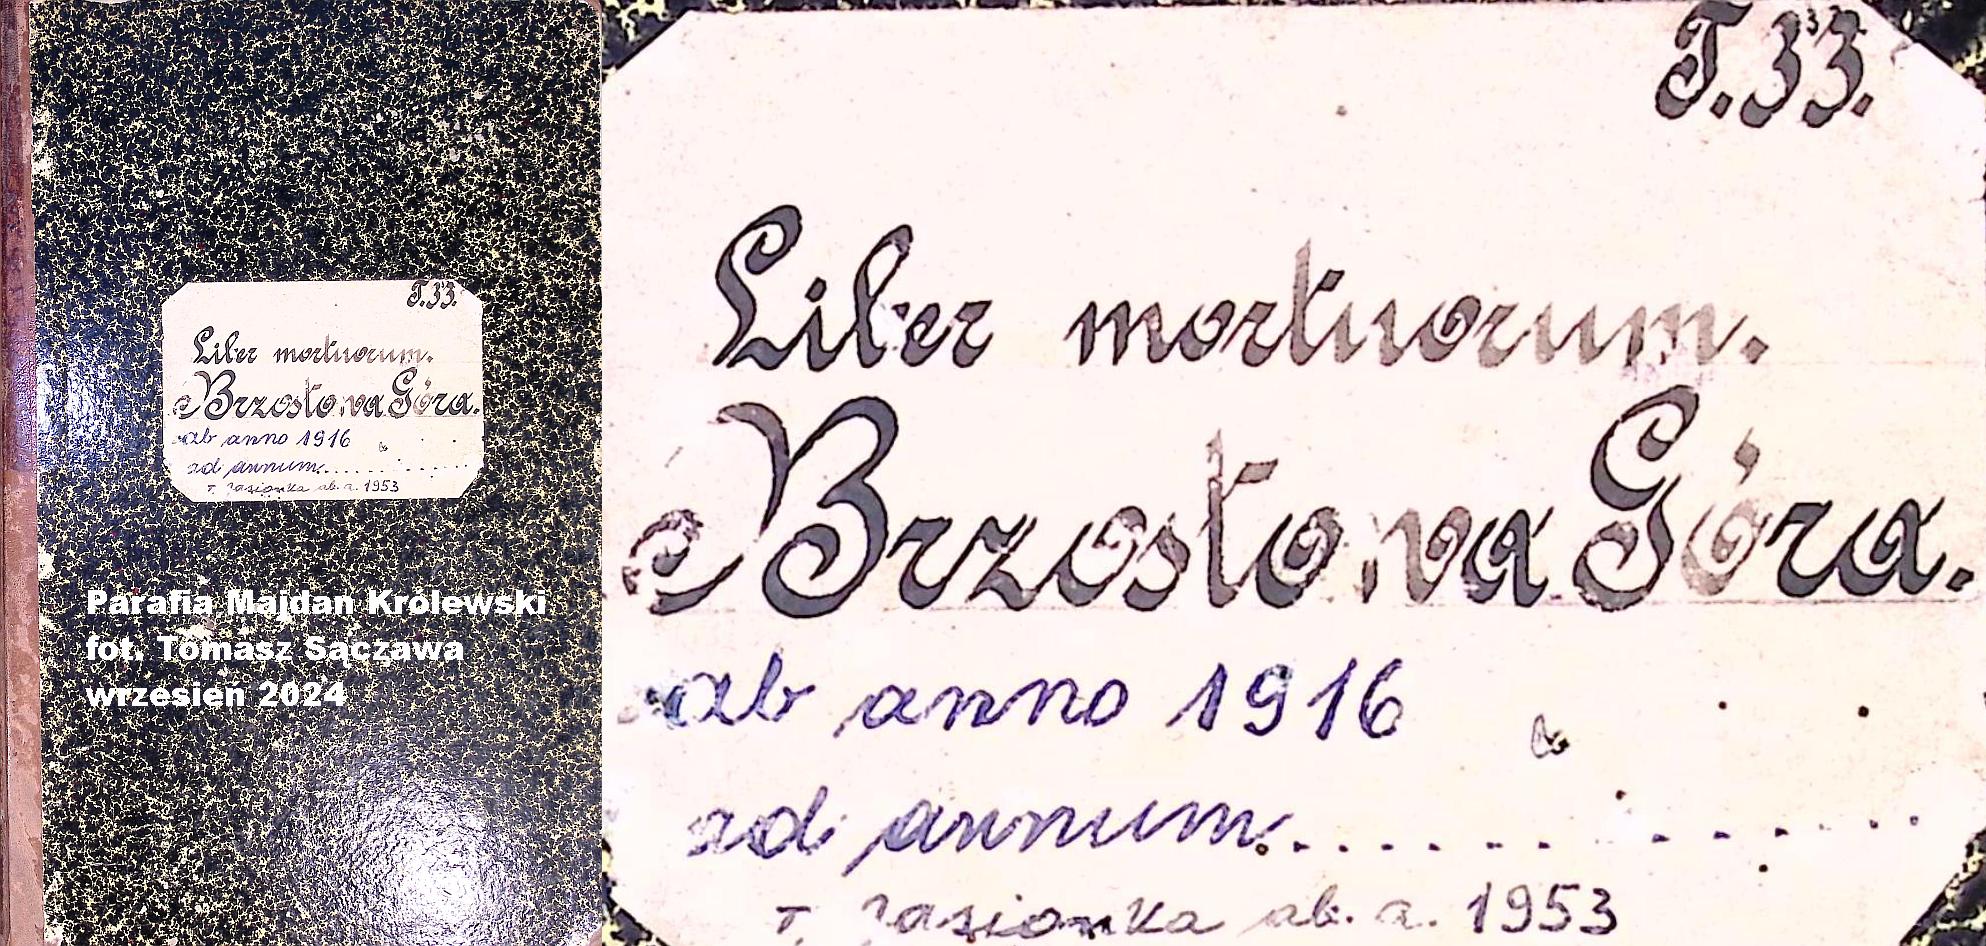 T. 33.
Liber mortuorum.
Brzostowa Góra.
ab anno 1916
ad annum..............
ab. a. 1953
Parafia Majdan Królewski
fot. Tomasz Sączawa
wrzesień 2024
T. 33.
Liber mortuorum.
Brzostowa Góra.
ab anno 1916
ad annum..............
ab. a. 1953